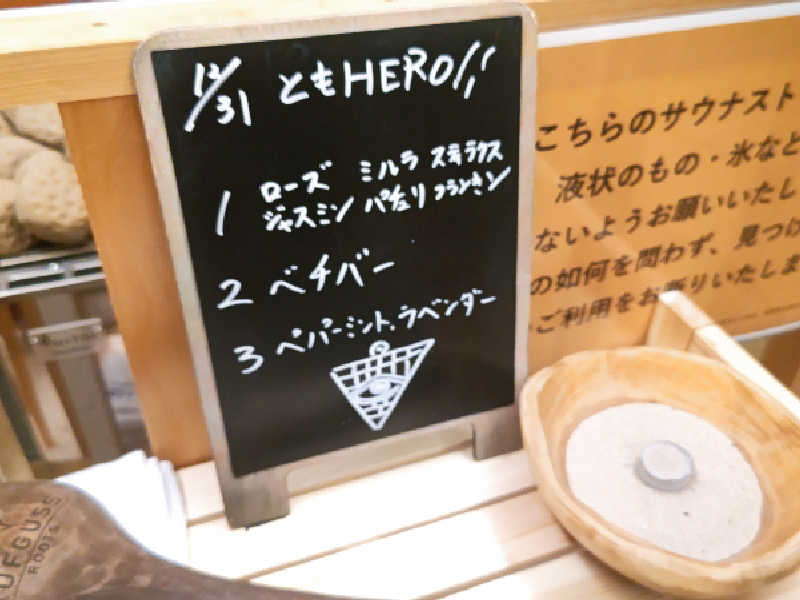 12/31 ともHERO!!
1 ローズ ミルラ スティラクス
ジャスミン パチュリ フランキン
2 ベチバー
3 ペパーミント、ラベンダー
こちらのサウナスト
液状のもの・氷など
ないようお願いいたし
の如何を問わず、見つけ
ご利用をお断りいたしま
UFGUSS
ROOTS